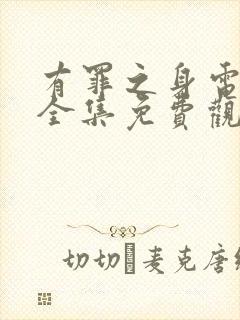 有罪之身電
全集免費觀
切切麦克唐纳